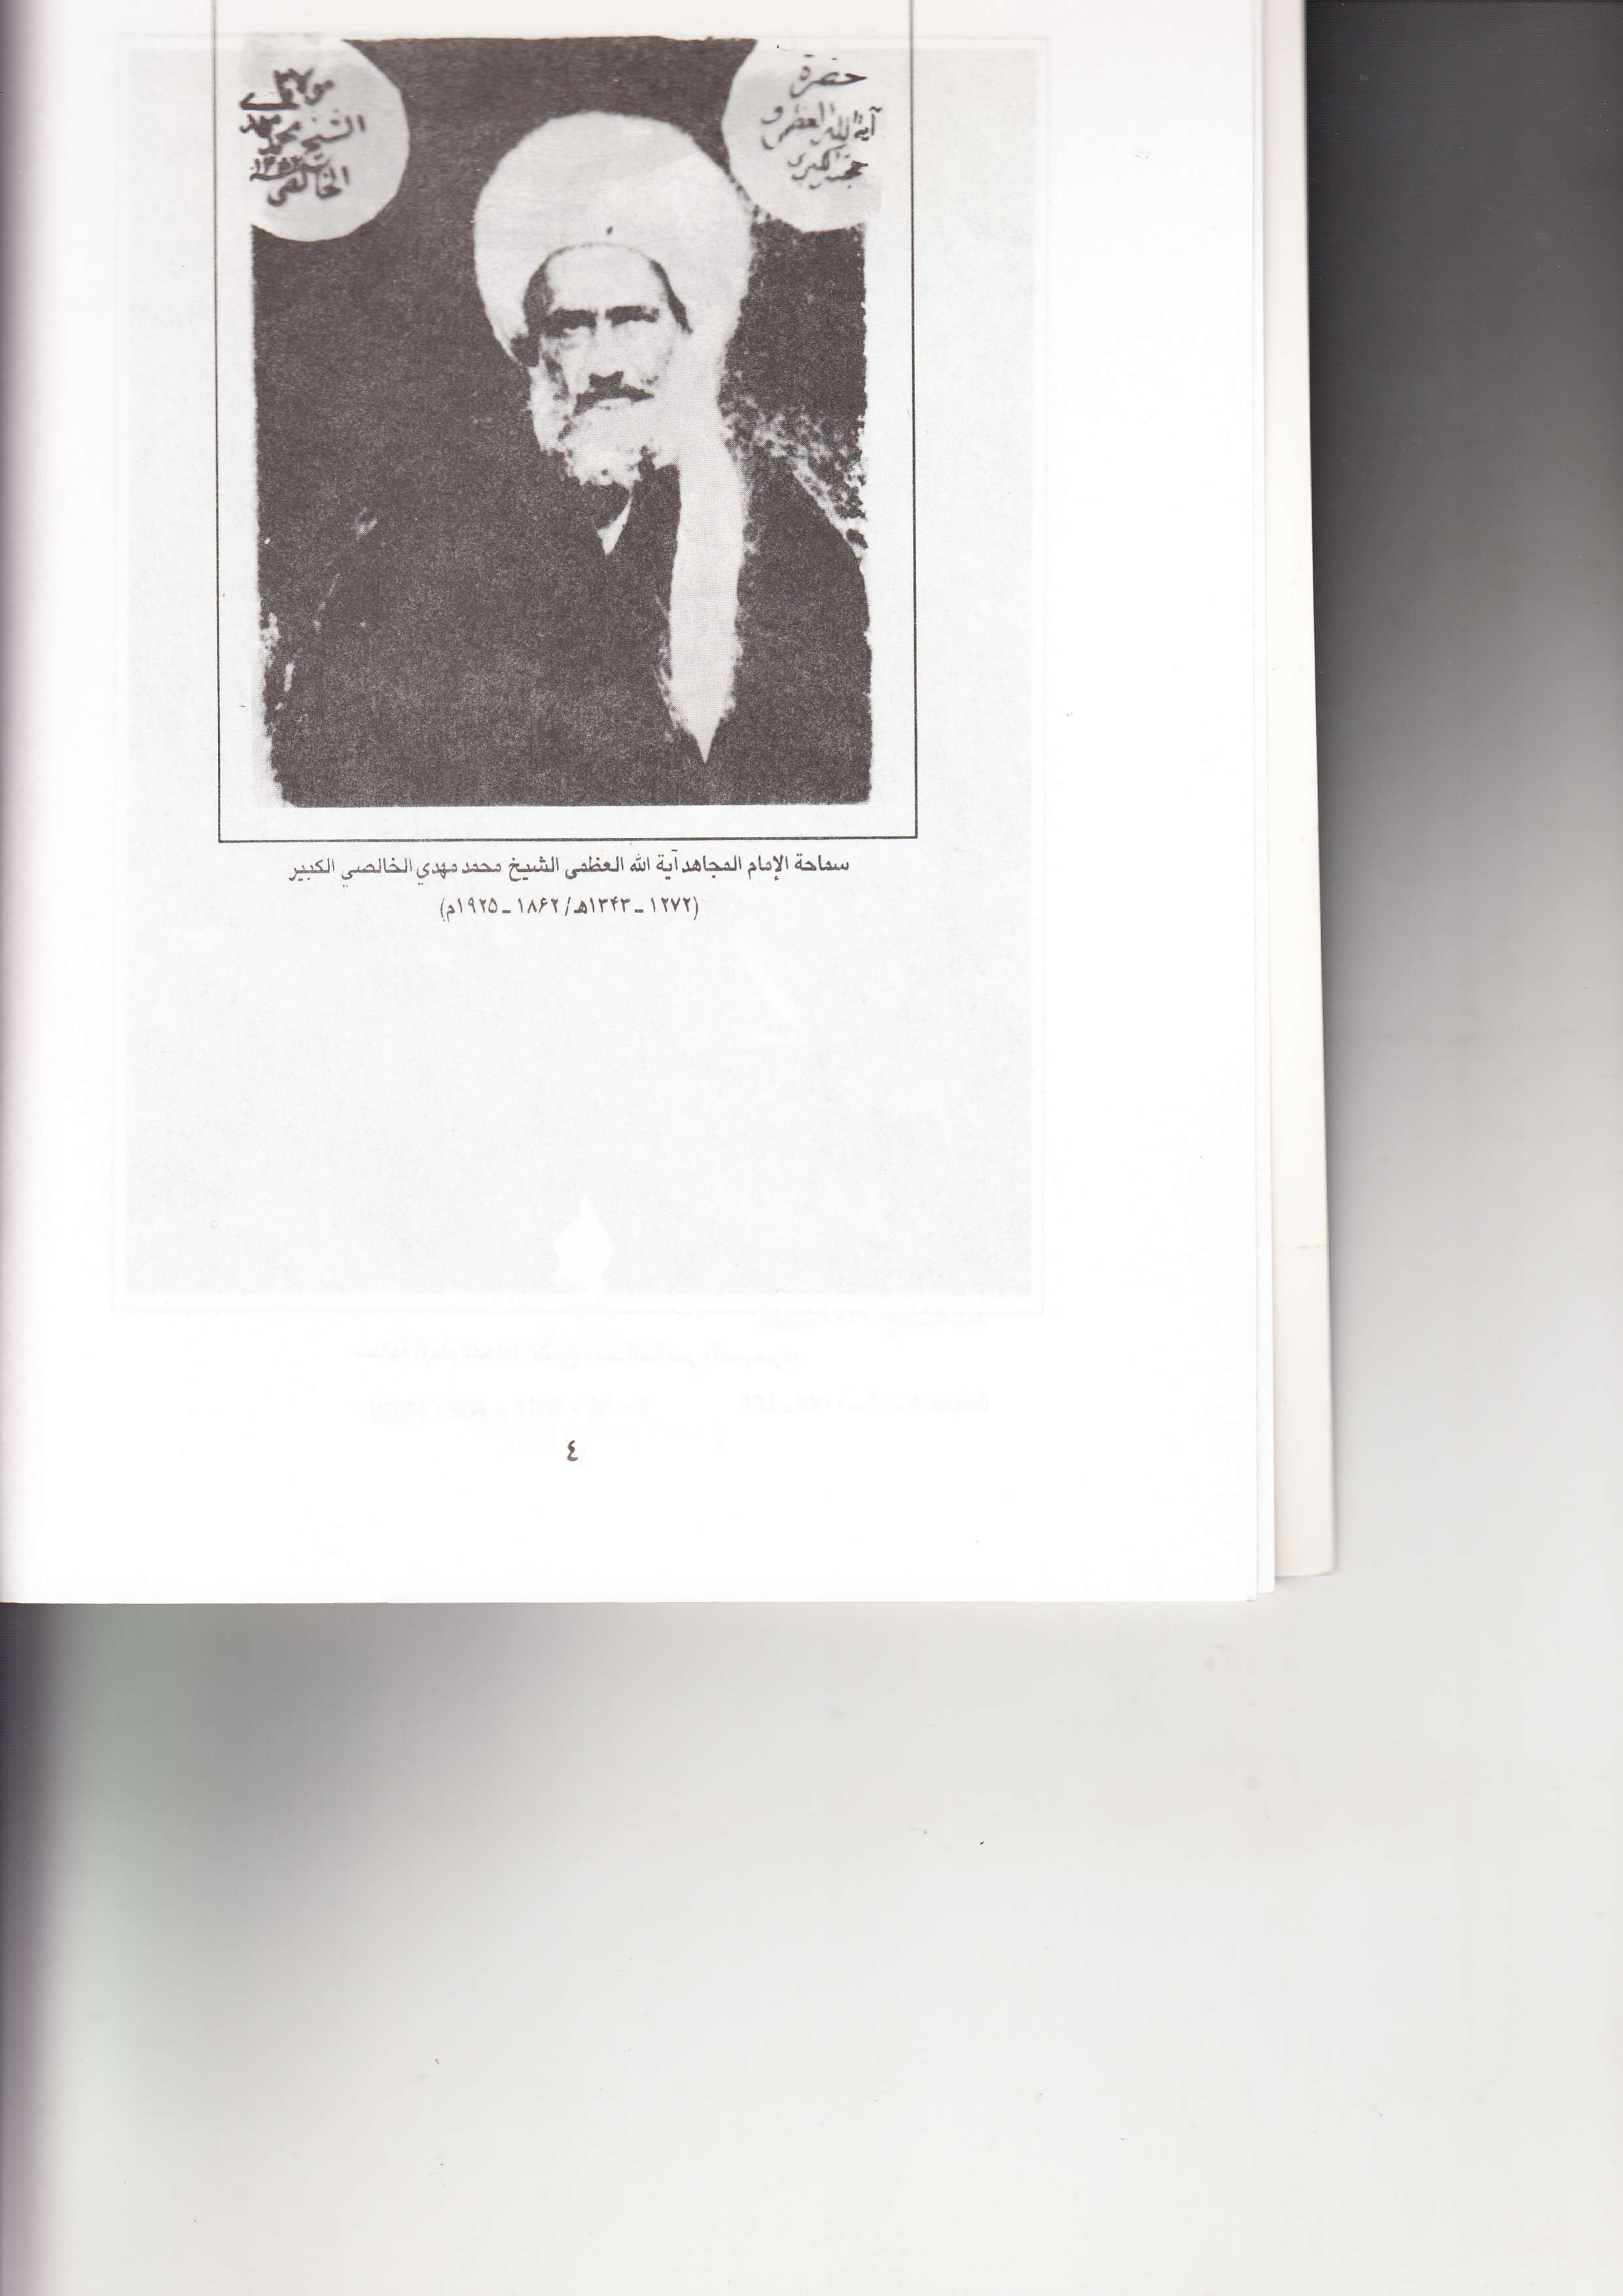 حضرة
آية الله العظمى و
حجته الكبرى
مولاي
الشيخ محمد مهدي
الخالصي
سماحة الإمام المجاهد آية الله العظمى الشيخ محمد مهدي الخالصي الكبير
(١٢٧٢ ـ ١٣۴٣هـ/ ١٨۶٢ ـ ١٩٢٥م)
٤